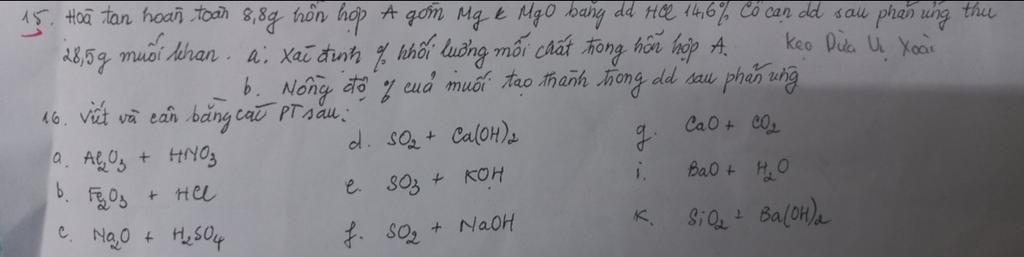 15. Hoà tan hoàn toàn 8,8g hỗn hợp A gồm Mg & MgO bằng dd HCl 14,6% Cô cạn dd sau phản ứng thu
28,5g muối khan. a. Xác định % khối lượng mỗi chất trong hỗn hợp A. Kẹo Dừa Vị Xoài
b. Nồng độ % của muối tạo thành trong dd sau phản ứng
16. Viết và cân bằng các PT sau:
a. Al2O3 + HNO3
b. Fe2O3 + HCl
c. Na2O + H2SO4
d. SO2 + Ca(OH)2
e. SO3 + KOH
f. SO2 + NaOH
g. CaO + CO2
i. BaO + H2O
K. SiO2 + Ba(OH)2